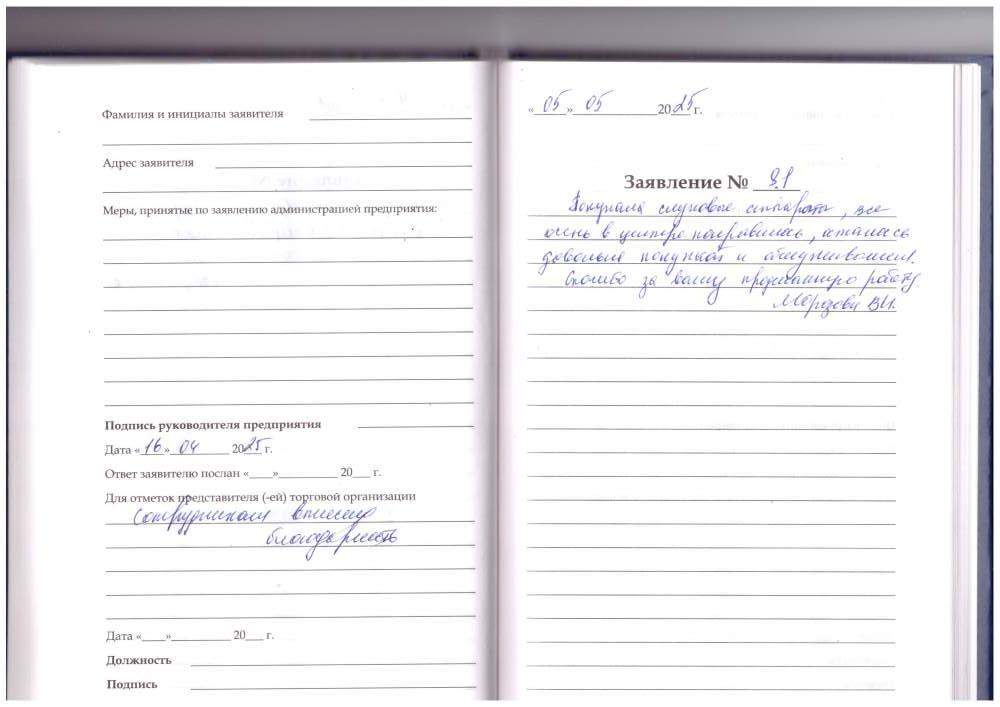 Фамилия и инициалы заявителя
Адрес заявителя
Меры, принятые по заявлению администрацией предприятия:
Подпись руководителя предприятия
Дата «16» 04 2025 г.
Ответ заявителю послан «___»__________ 20___ г.
Для отметок представителя (-ей) торговой организации
Сотрудникам
благодарность
Дата «____»__________ 20___ г.
Должность
Подпись
«05» 05 2025 г.
Заявление №
Покупала слуховые аппараты, все
очень в центре понравилось, осталась
довольна покупкой и обслуживанием.
Спасибо за вашу работу.
Морозова В.И.